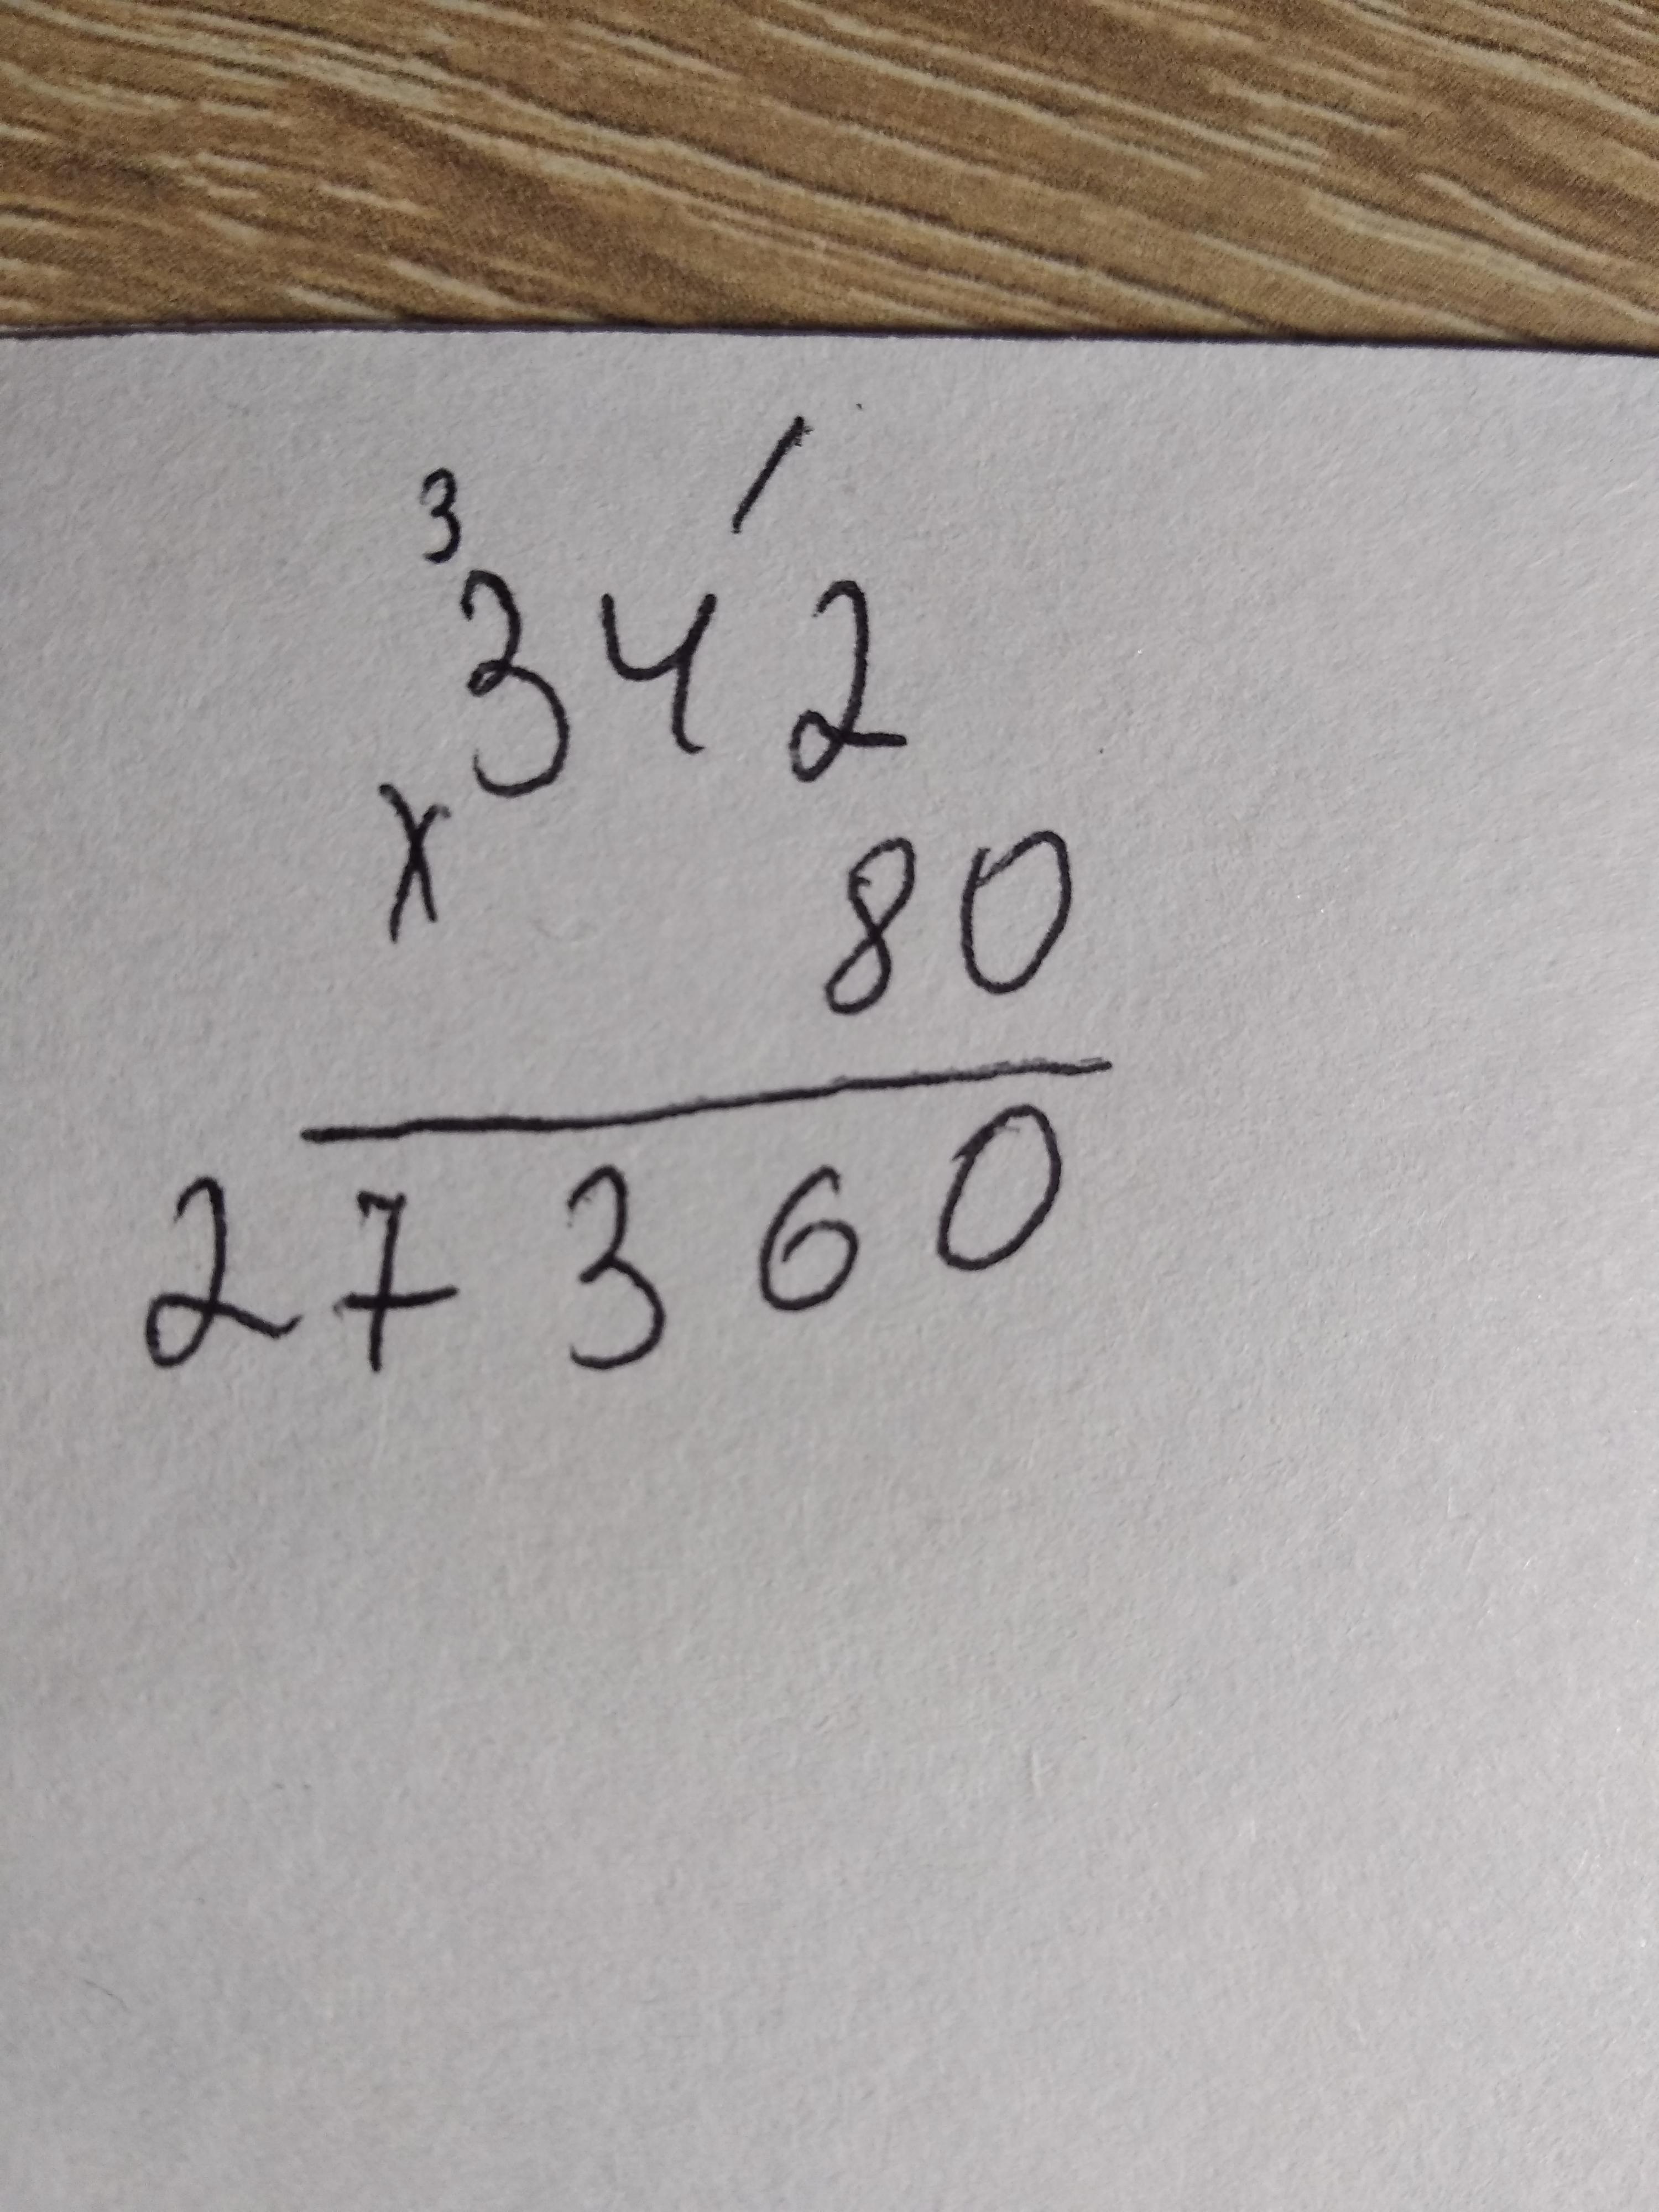 3 /
342
x 80
27360